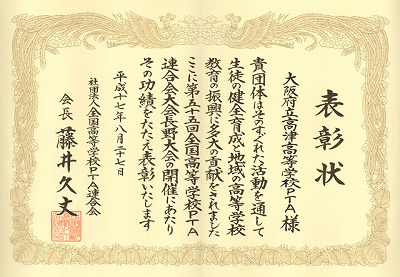 表彰状
大阪府立高津高等学校PTA 様
貴団体はそのすぐれた活動を通して
生徒の健全育成と地域の高等学校
教育の振興に多大の貢献をされました
ここに第五十五回全国高等学校PTA
連合会大会長野大会の開催にあたり
その功績をたたえ表彰いたします
平成十七年八月二十七日
社団法人全国高等学校PTA連合会
会長 藤井久丈